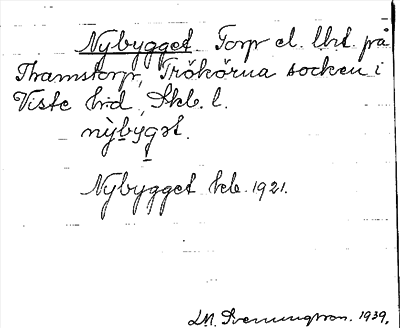 Nybygget. Torp el. lht. på
Thamstorp, Trökörna socken i
Viste hrd, Skb. l.
nỳbýgət.
Nybygget kb. 1921.
1939.